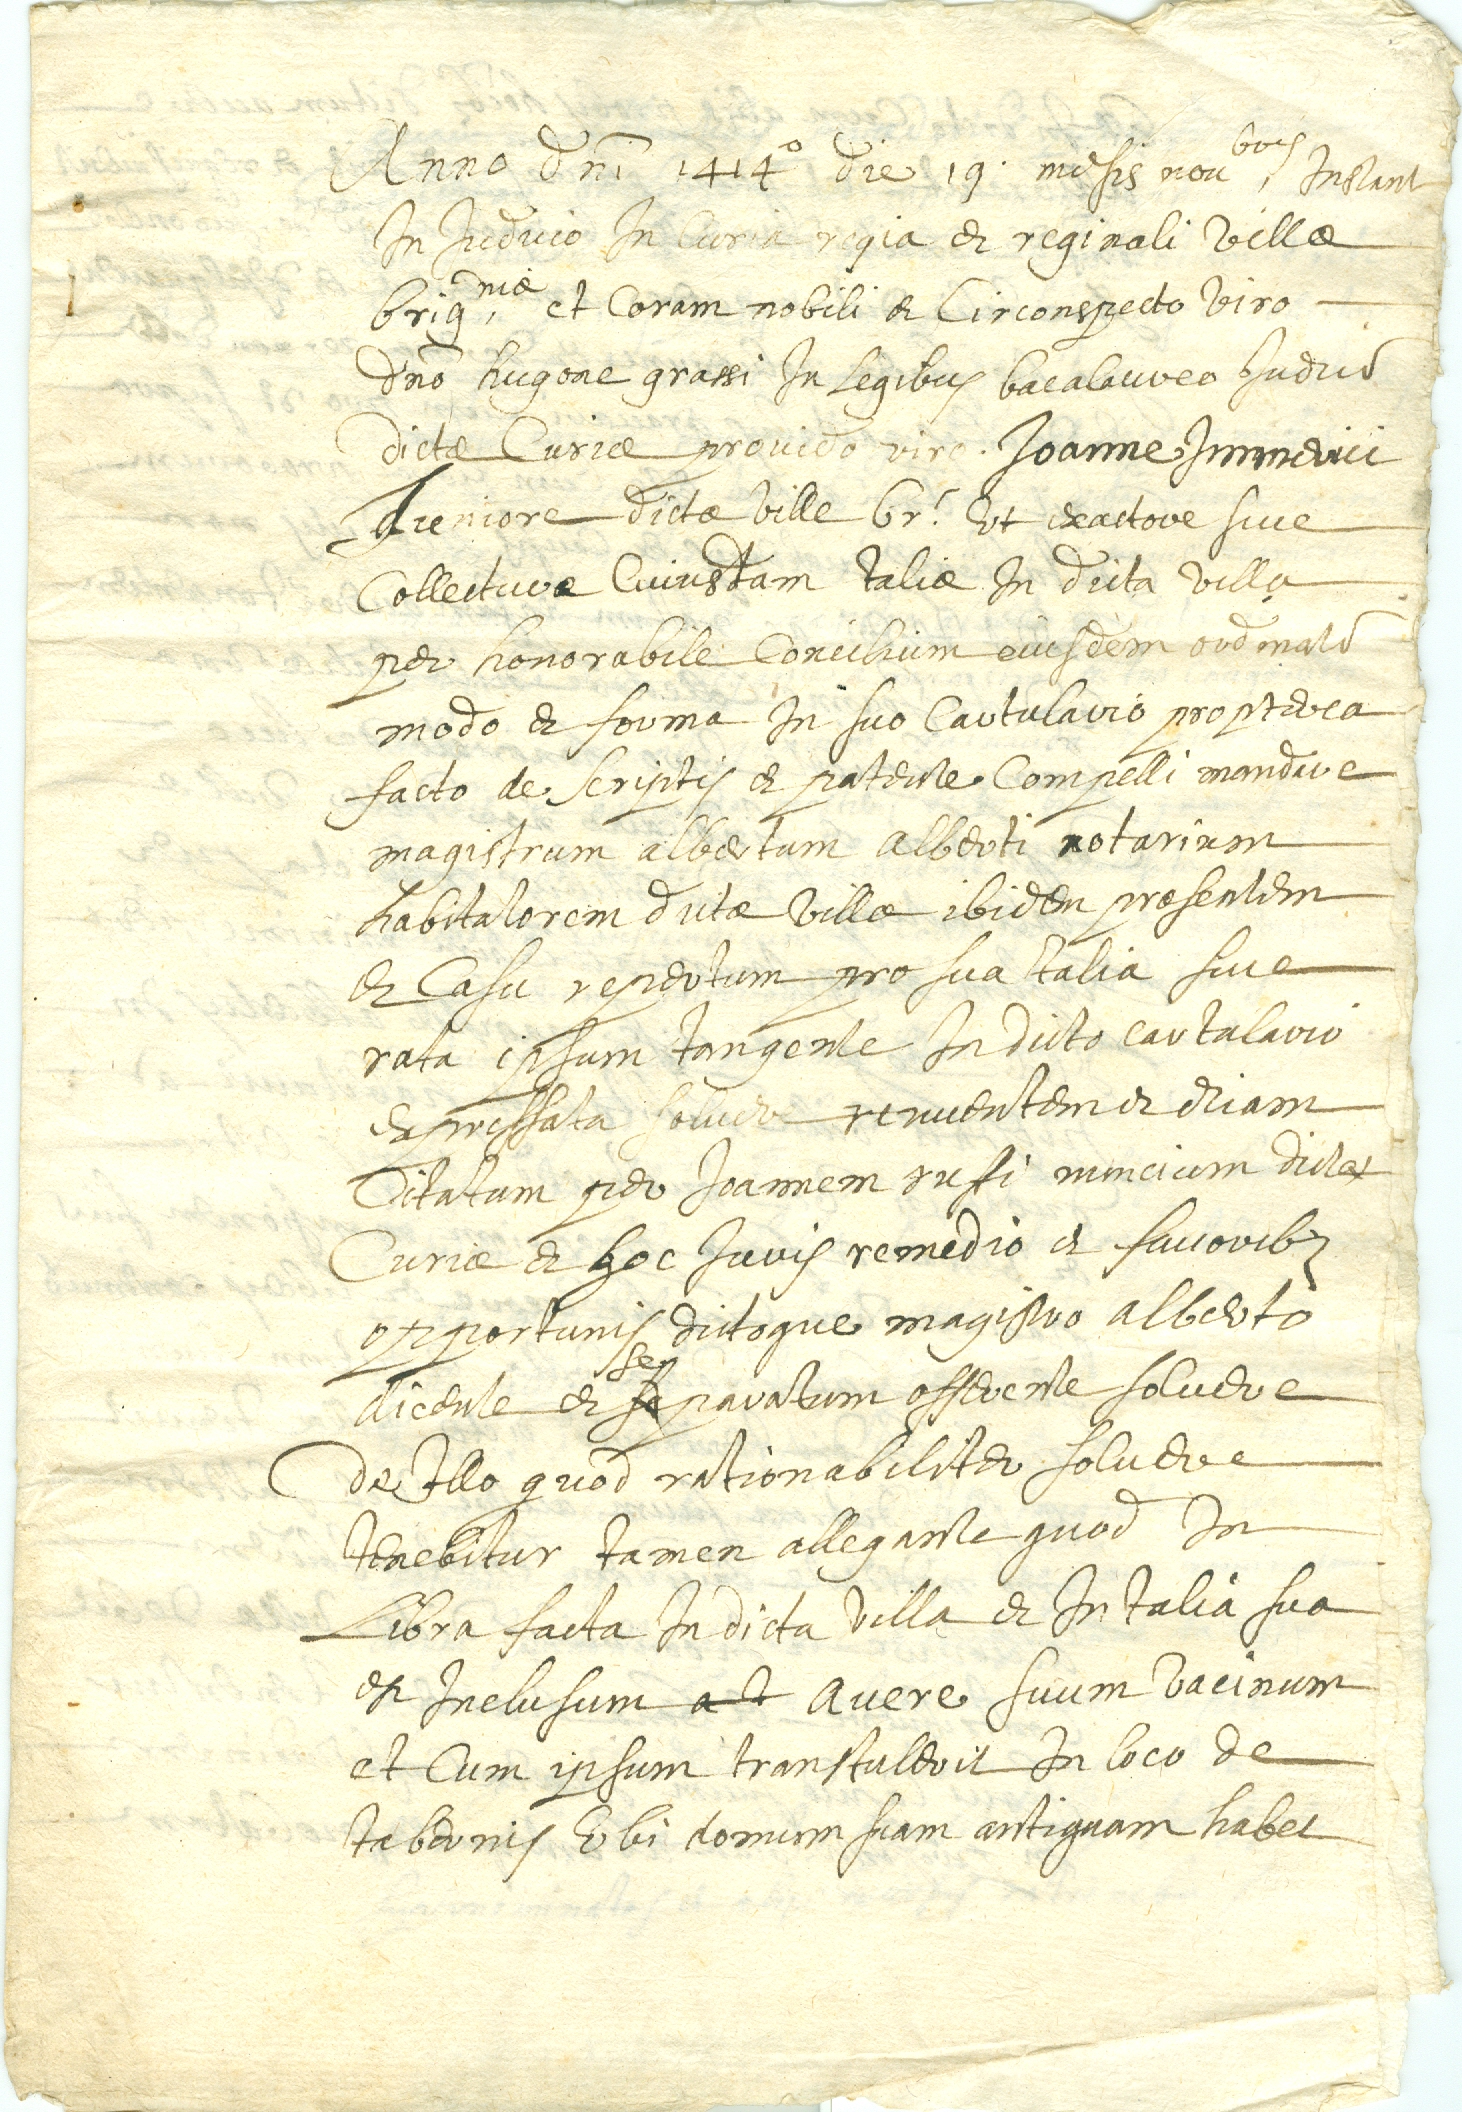 Anno dni 1414° die 19. mensis nou^bris, Instant
In Iudicio In Curia regia et reginali Villæ
brig^niæ, et Coram nobili et Circonspecto Viro
dno hugone grassi In Legibus bacalaureo Iudice
dictæ Curiæ prouido viro. Joanne
Iuniore dictæ Ville br. Ut exactore siue
Collectore Cuiusdam taliæ In dicta villa
per honorabile Concilium eiusdem ordinatæ
modo et forma In suo Cartulario propterea
facto de scriptis et patente Compelli mandare
magistrum albertum alberti notarium
habitatorem dictæ Villæ ibidem præsentem
et Casu repertum pro sua talia siue
rata ipsum tangente In dicto cartulario
expressata soluere renuentem et etiam
Citatum per Joannem ruffi nuncium dictæ
Curiæ et hoc Iuris remedio et fauorib;
opportunis dictoque magistro alberto
dicente et se paratum offerente soluere
de Illo quod rationabiliter soluere
tenebitur tamen allegante quod In
Libra facta In dicta villa et In talia sua
est Inclusum at auere suum Vacinum
et Cum ipsum transtulerit In loco de
tabernis Vbi domum suam antiquam habet